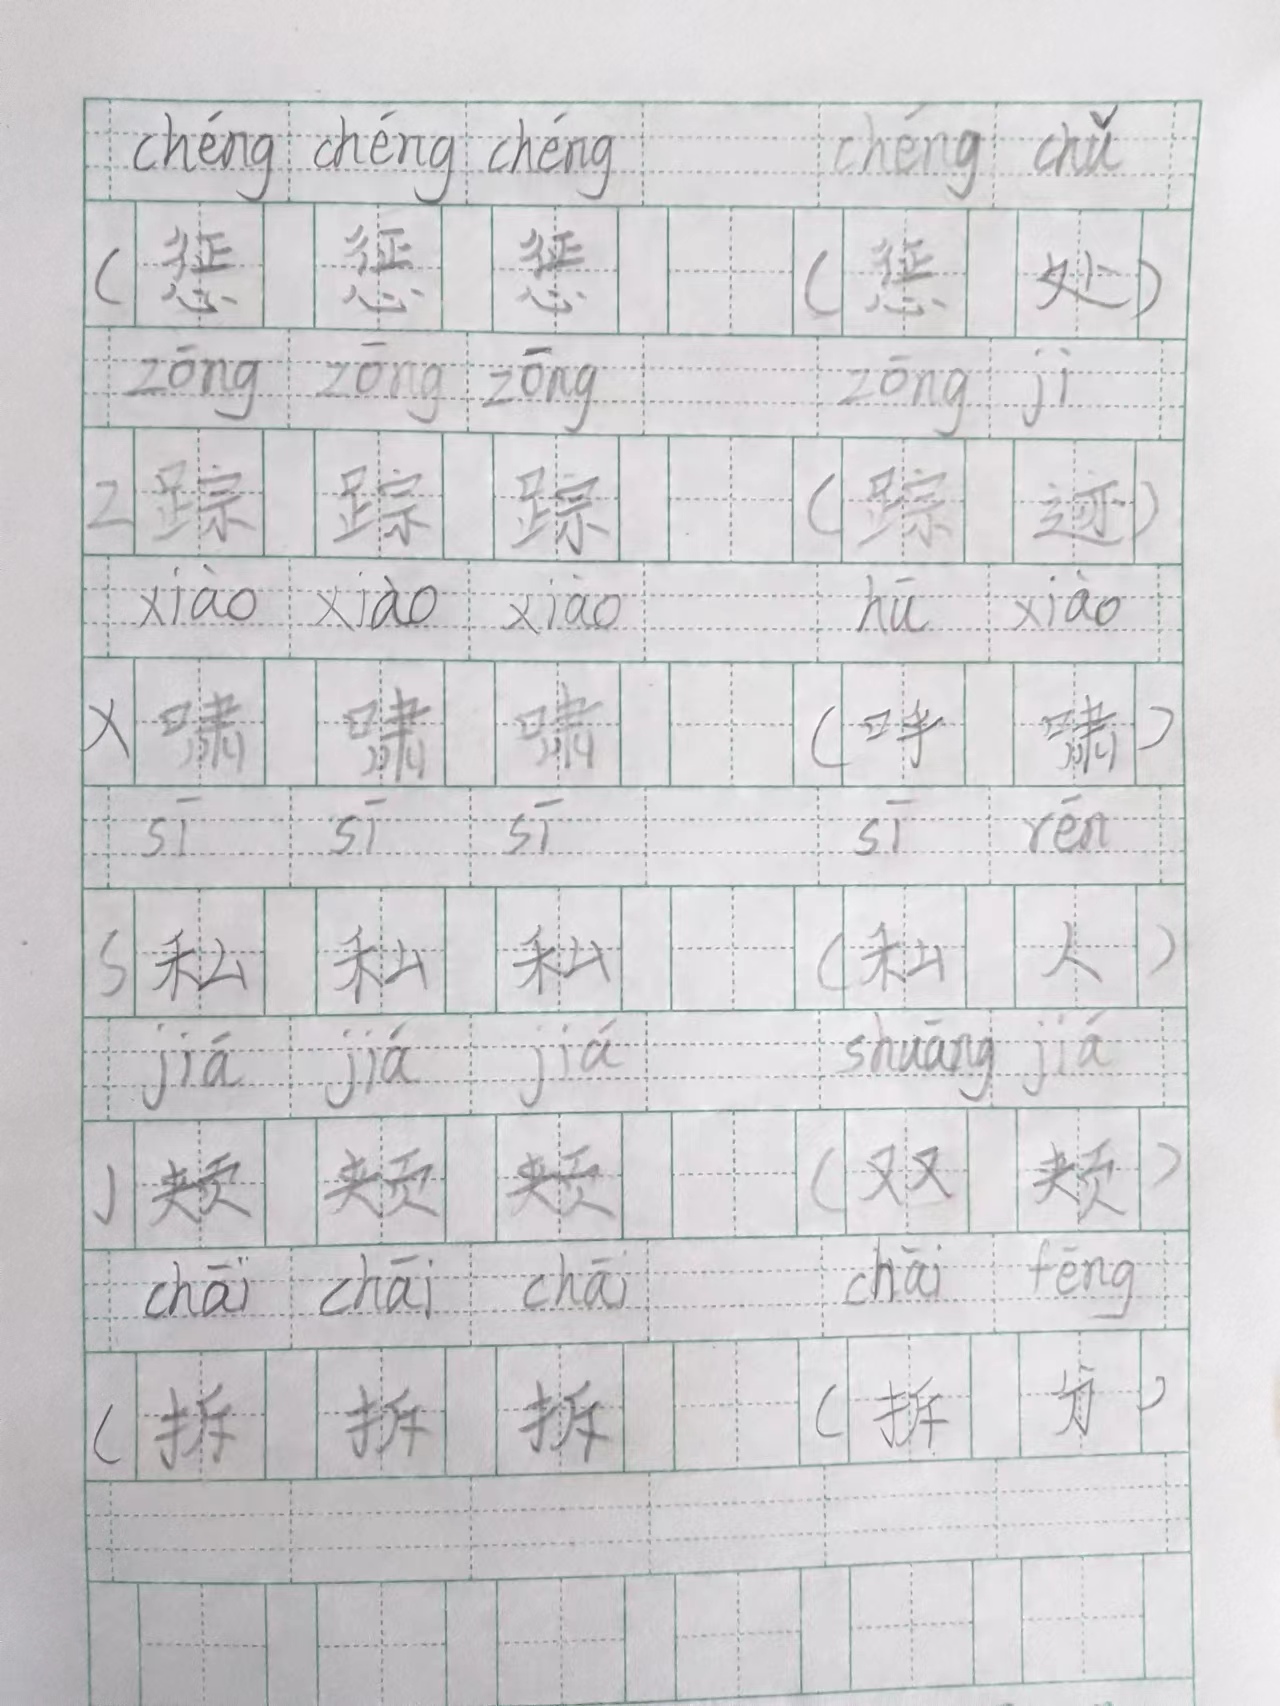 chéng chéng chéng chéng chǔ
( 惩 惩 惩 ( 惩 处 )
zōng zōng zōng zōng jì
Z 踪 踪 踪 ( 踪 迹 )
xiào xiào xiào hū xiào
X 啸 啸 啸 ( 呼 啸 )
sī sī sī sī rén
S 私 私 私 ( 私 人 )
jiá jiá jiá shuāng jiá
J 颊 颊 颊 ( 双 颊 )
chāi chāi chāi chāi fēng
( 拆 拆 拆 ( 拆 分 )